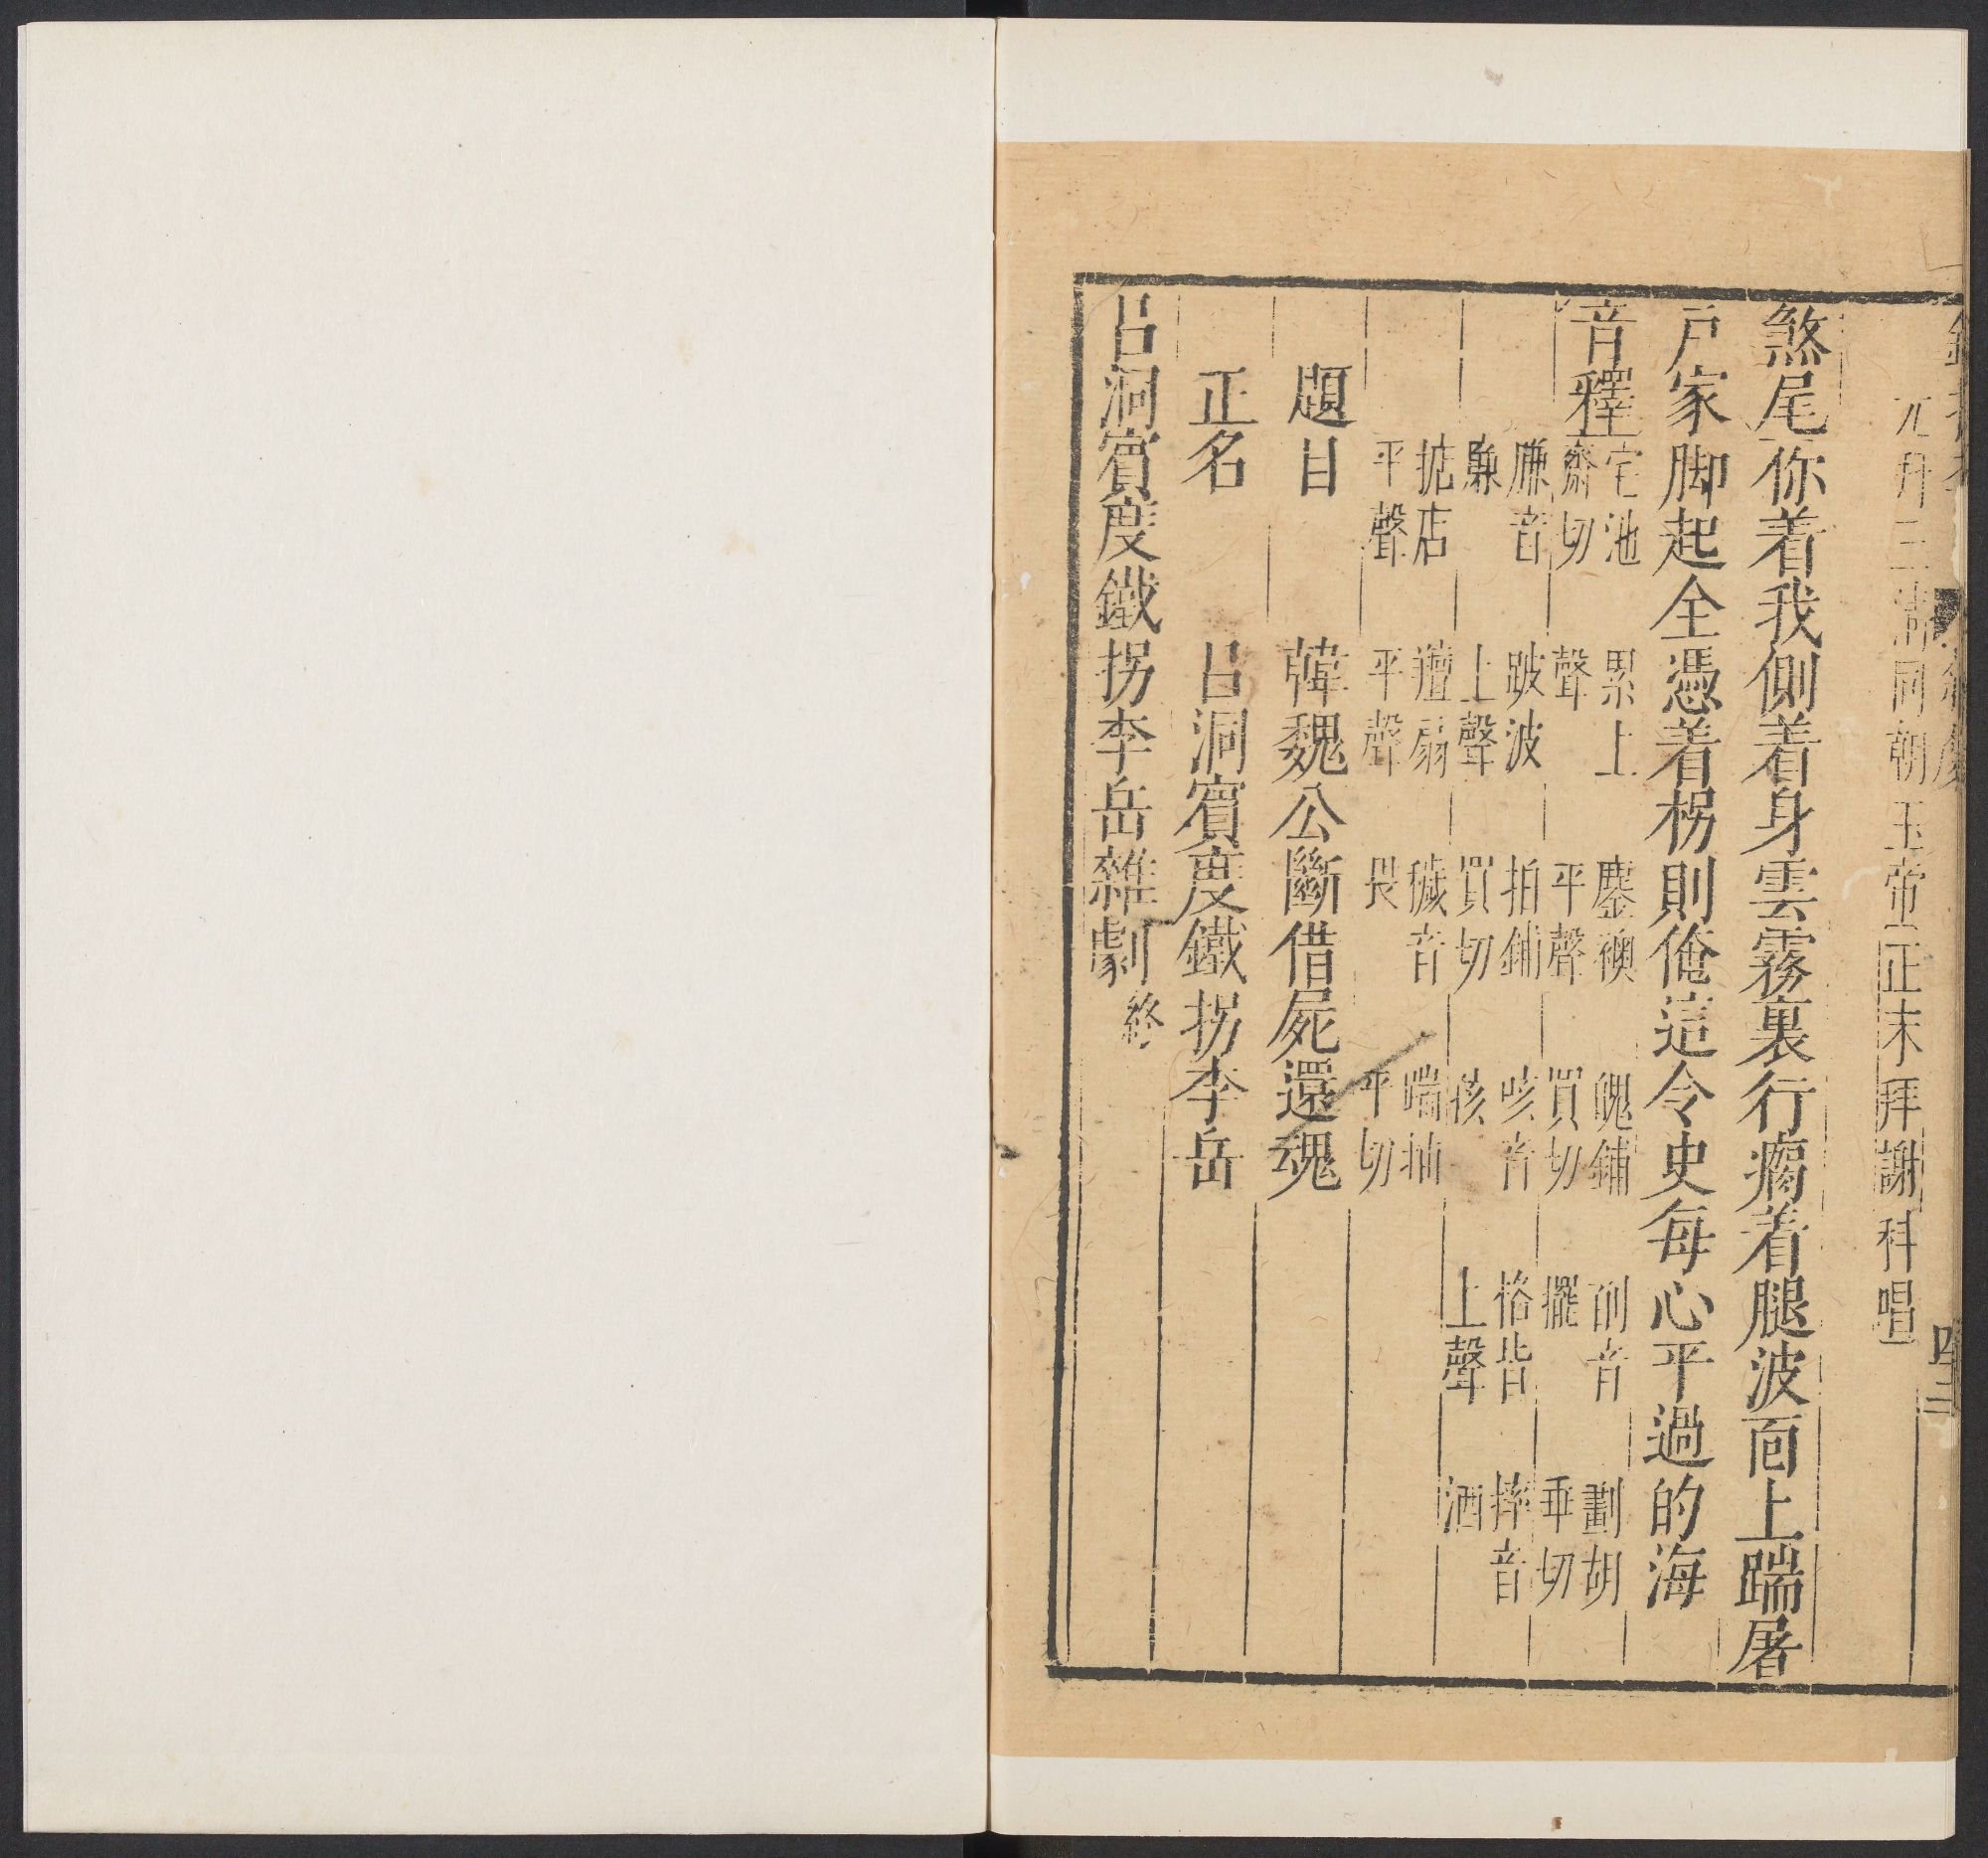 元 三清同朝玉帝正末拜謝科唱
煞尾你着我側着身雲霧裏行瘸着腿波面上踹屠
戶家脚起全憑着柺則俺這令史每心平過的海
音釋
宅池齋切 累上聲 鏖襖平聲 䰟鋪買切 音擺 劃胡乖切
賺音 跛波上聲 拍鋪買切 咳音孩 楷皆上聲 摔音洒
掂店平聲 羶扇平聲 穢音畏 喘抽平切
題目 韓魏公斷借屍還魂
正名 吕洞賓度鐵拐李岳
吕洞賓度鐵拐李岳雜劇終